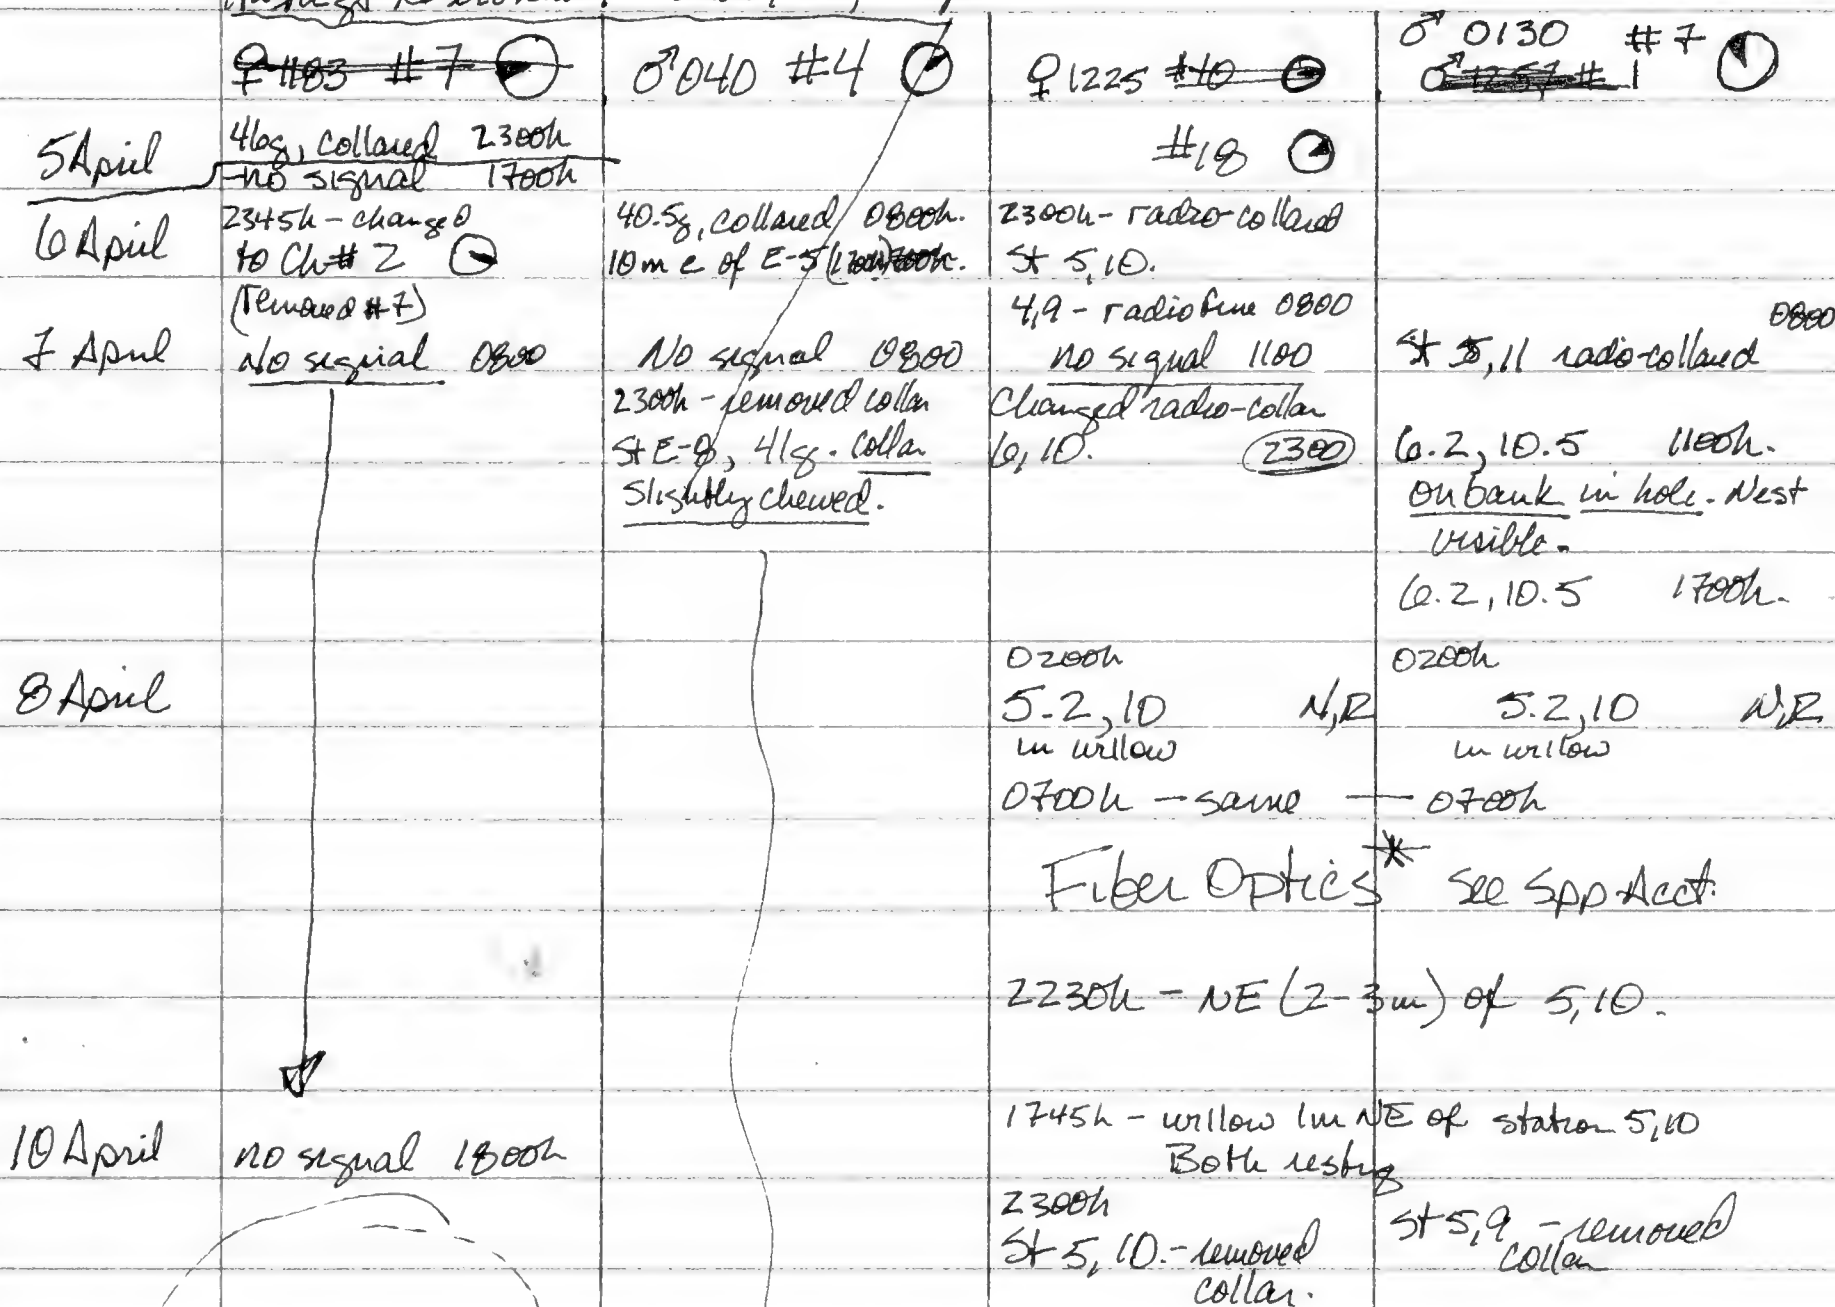 ♀ 1183 #7
♂ 040 #4
♀ 1225 #10
#18
♂ 0130 #7
♂ 1257 # 1
5 April
46g, collared 2300h
no signal 1700h
6 April
2345h - changed
to Ch# 2
(removed #7)
40.5g, collared 0800h.
10m e of E-5
2300h - radio-collared
St 5,10.
7 April
No signal 0800
No signal 0800
2300h - removed collar
St E-8, 41g. collar
slightly chewed.
4,9 - radio fine 0800
no signal 1100
Changed radio-collar
6,10. 2300
0800
St 5,11 radio-collared
6.2, 10.5 1100h.
on bank in hole. Nest
visible.
6.2, 10.5 1700h.
8 April
0200h
5.2, 10 N,R
in willow
0700h - same — 0700h
0200h
5.2, 10 N,R
in willow
Fiber Optics* See Spp Acct.
2230h - NE (2-3m) of 5,10.
10 April
no signal 1800h
1745h - willow 1m NE of station 5,10
Both resting
2300h
St 5, 10. - removed
collar.
St 5,9 - removed
collar